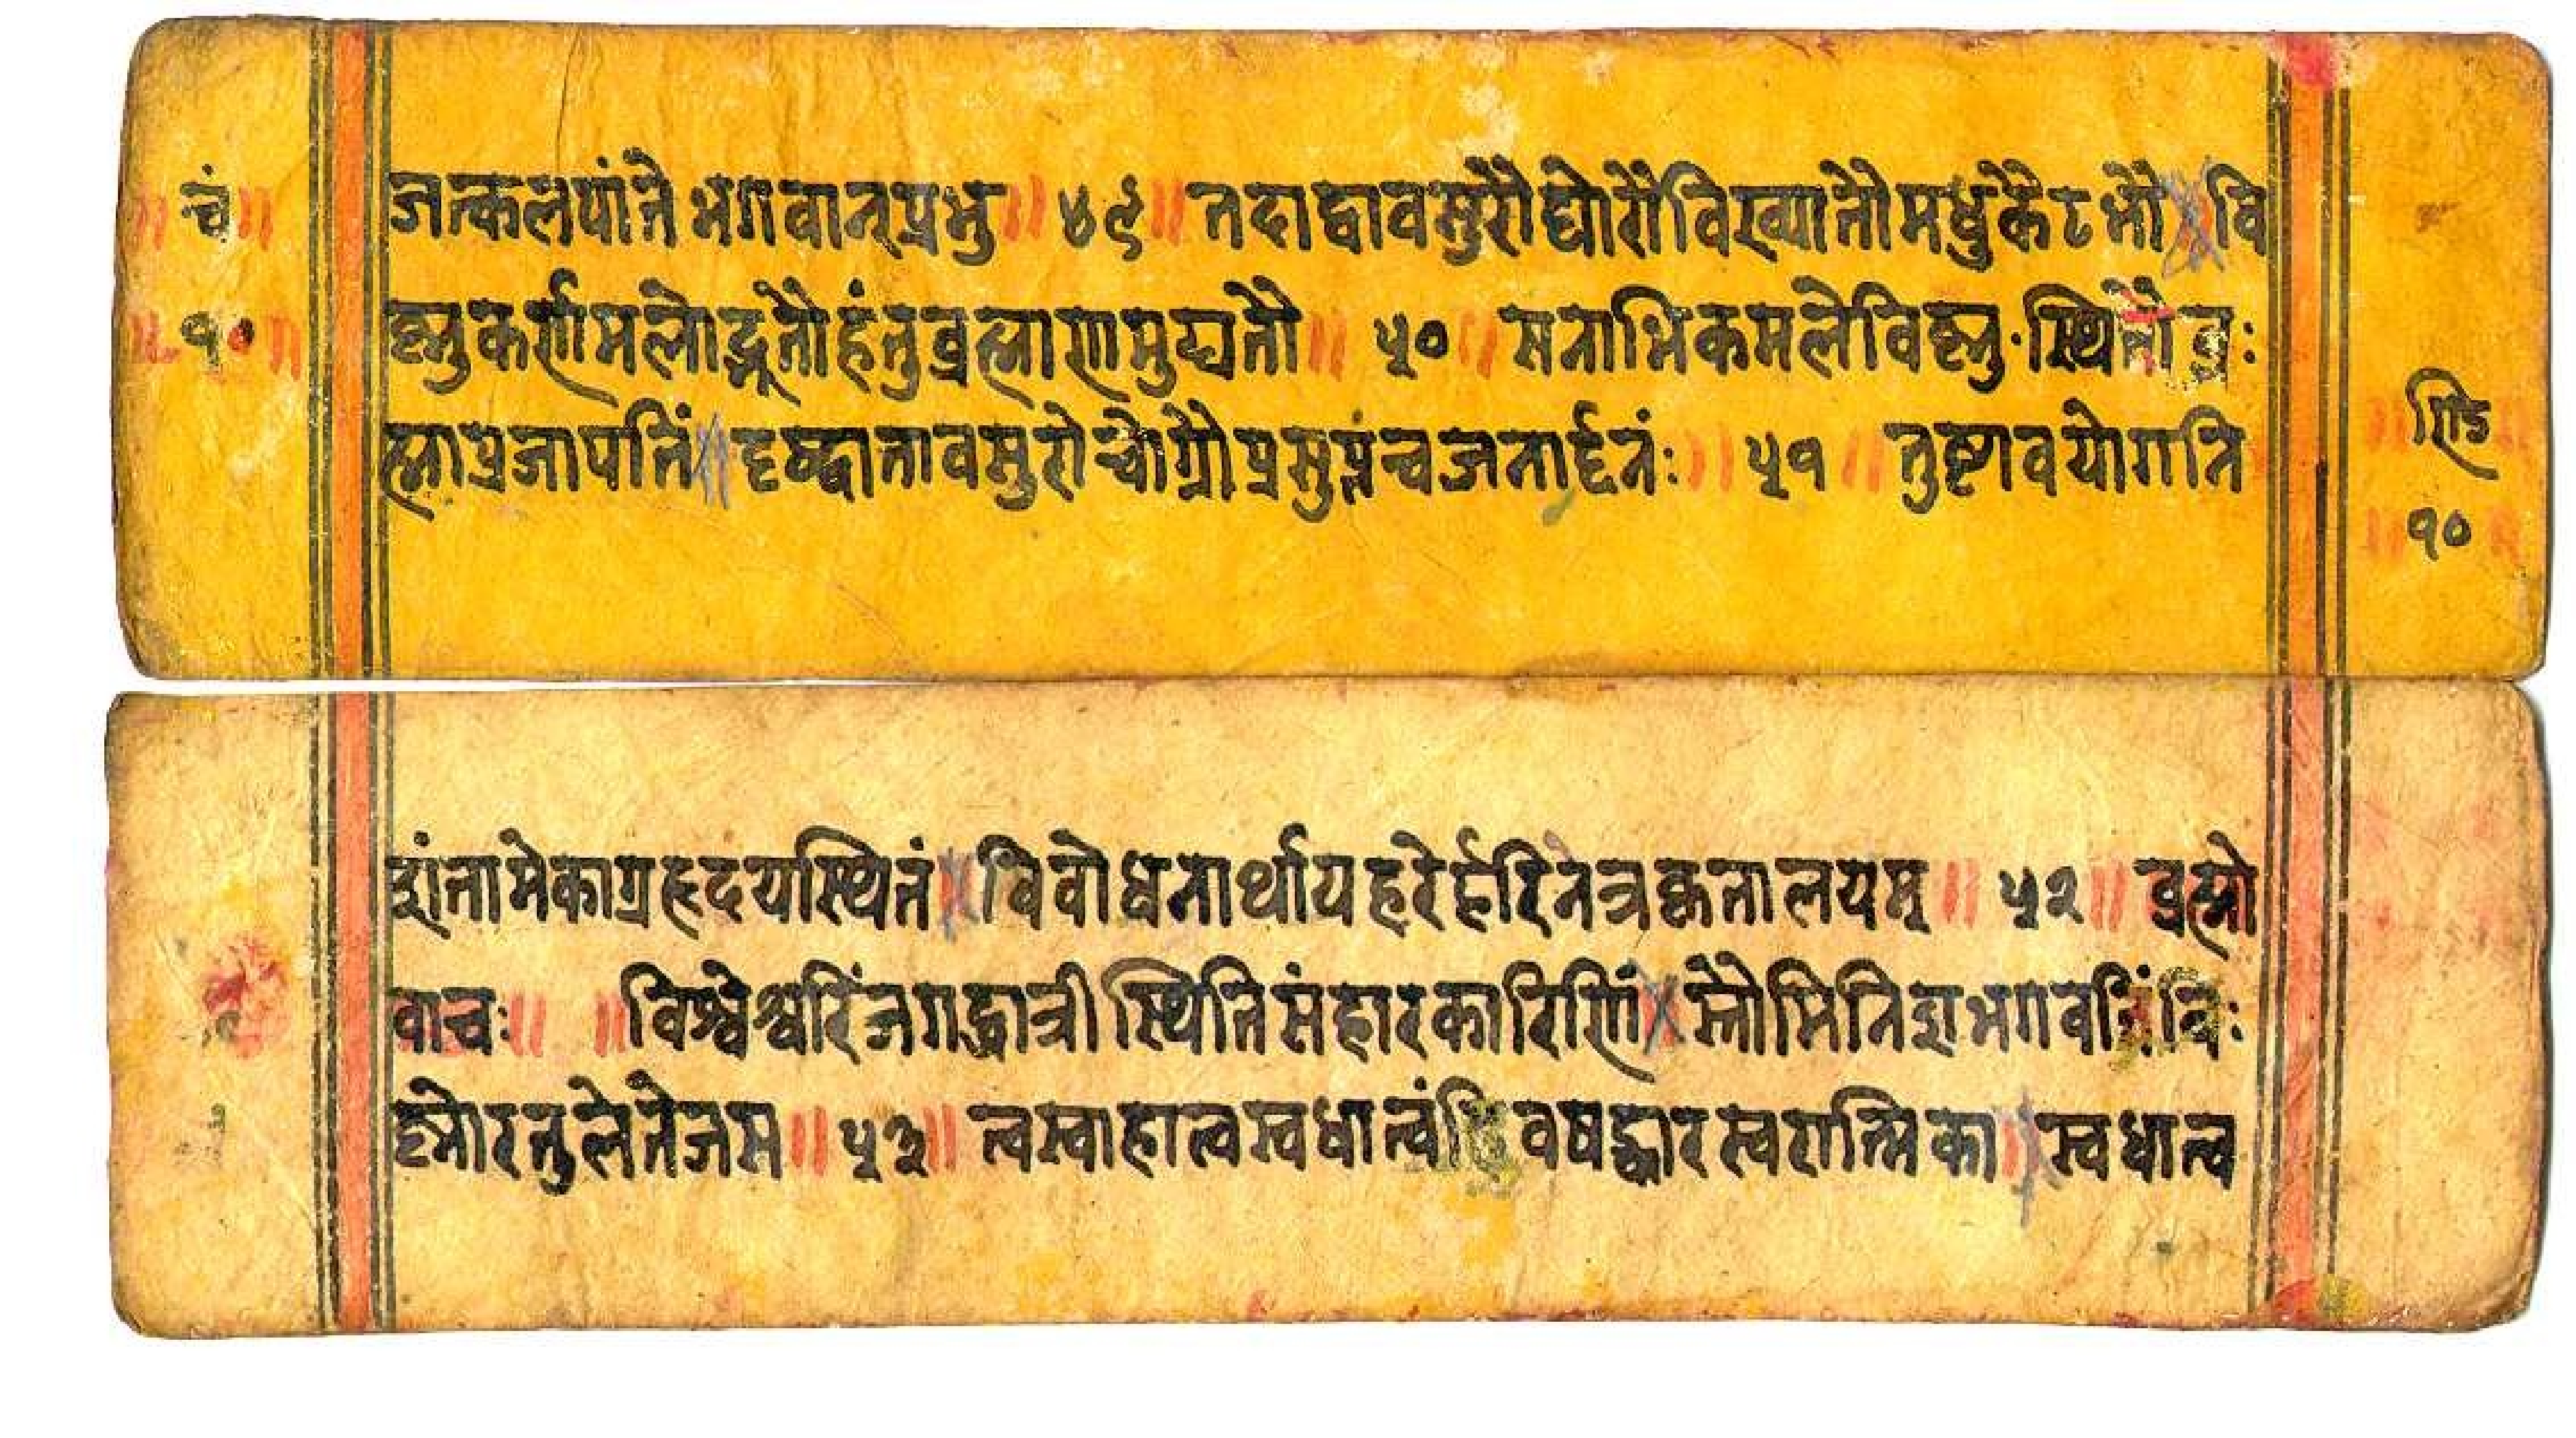 चं
१०
जत्कलपांते भगवान्प्रभु ॥ ४९ ॥ तदाद्वावसुरौघोरौविख्यातौमधुकैटभौ वि
ष्णुकर्णामलोद्भूतौहंतुब्रह्माणामुद्यतौ ॥ ५० ॥ सनाभिकमलेविष्णु स्थितो ब्र:
ह्माप्रजापतिं दृष्ट्वातावसुरोचोग्रौप्रसुप्तंचजनार्द्दनं: ॥ ५१ ॥ तुष्टावयोगनि
ण्डि
१०
द्रांतामेकाग्रहृदयस्थितं विवोधनार्थायहरेर्हरिनेत्रकृतालयम् ॥ ५२ ॥ ब्रह्मो
वाच: ॥ ॥ विश्वेश्वरिंजगद्धात्री स्थितिसंहारकारिणिं स्तौमिनिद्राभगवतिं वि:
ष्णोरतुलेतेजस ॥ ५३ ॥ त्वस्वाहात्वस्वधात्वं वषट्कारस्वरात्मिका स्वधात्व